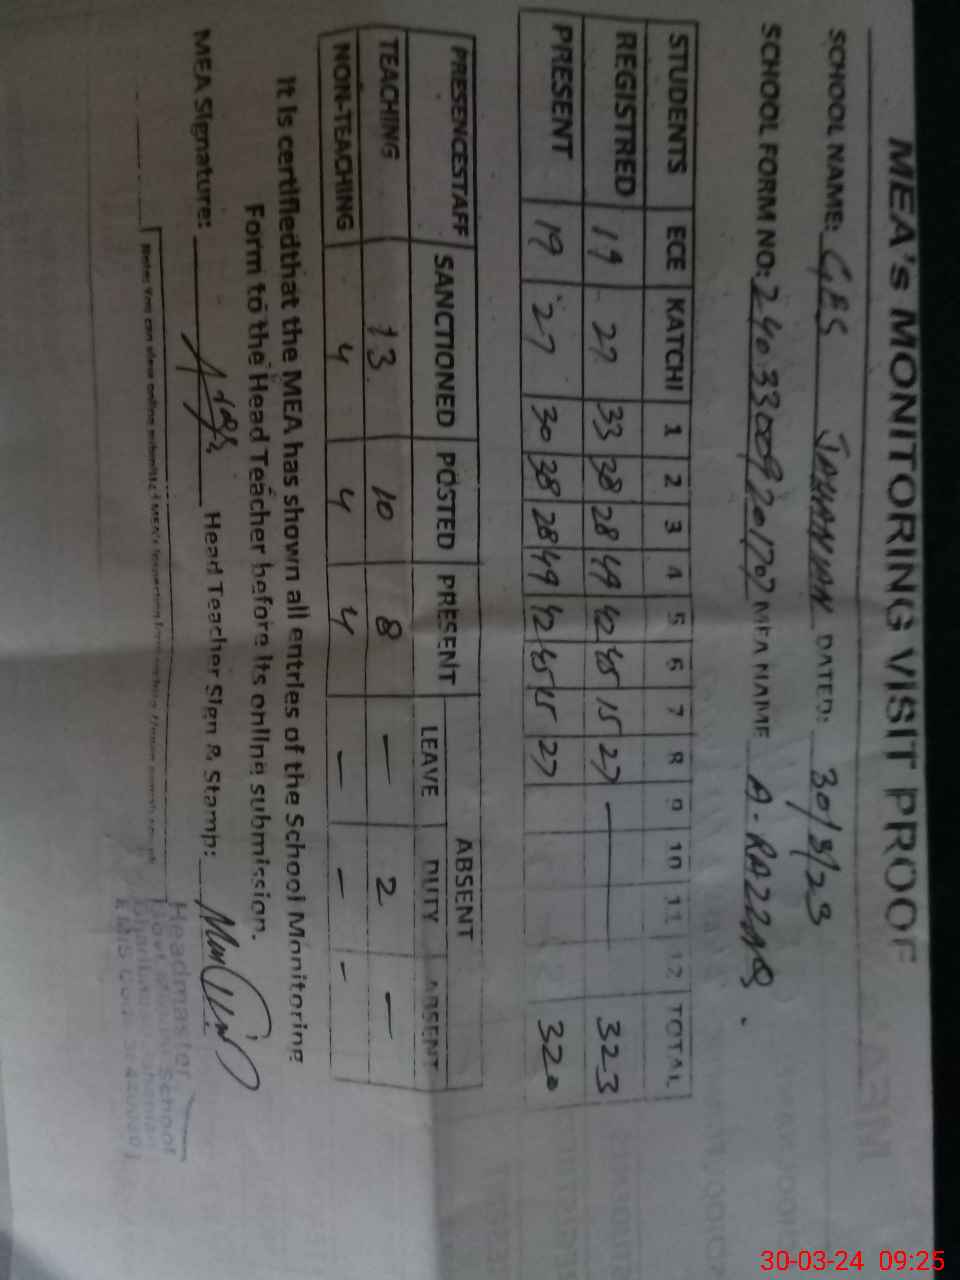 MEA's MONITORING VISIT PROOF
SCHOOL NAME: GES JAHANIAN DATED: 30/3/23
SCHOOL FORM NO: MEA NAME A. RAZZAQ.
STUDENTS ECE KATCHI 1 2 3 4 5 6 7 8 9 10 11 12 TOTAL
REGISTRED 19 27 33 38 28 49 42 45 15 27 — 323
PRESENT 19 27 30 38 28 49 42 45 15 27 320
PRESENCESTAFF SANCTIONED POSTED PRESENT ABSENT
LEAVE DUTY ABSENT
TEACHING 13 10 8 — 2 —
NON-TEACHING 4 4 4 — — -
It is certifiedthat the MEA has shown all entries of the School Monitoring
Form to the Head Teacher before its online submission.
MEA Signature: Head Teacher Sign & Stamp:
Headmaster
School
Note: You can view online submitted MEA's
30-03-24 09:25